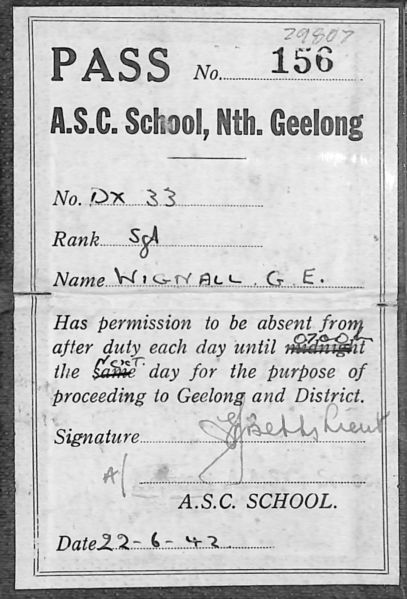 29807
PASS No. 156
A.S.C. School, Nth. Geelong
No. DX 33
Rank Sgt
Name WIGNALL. G. E.
Has permission to be absent from
0700h
after duty each day until midnight
NEXT.
the same day for the purpose of
proceeding to Geelong and District.
Signature Betts Lieut
A/
A.S.C. SCHOOL.
Date 22-6-42